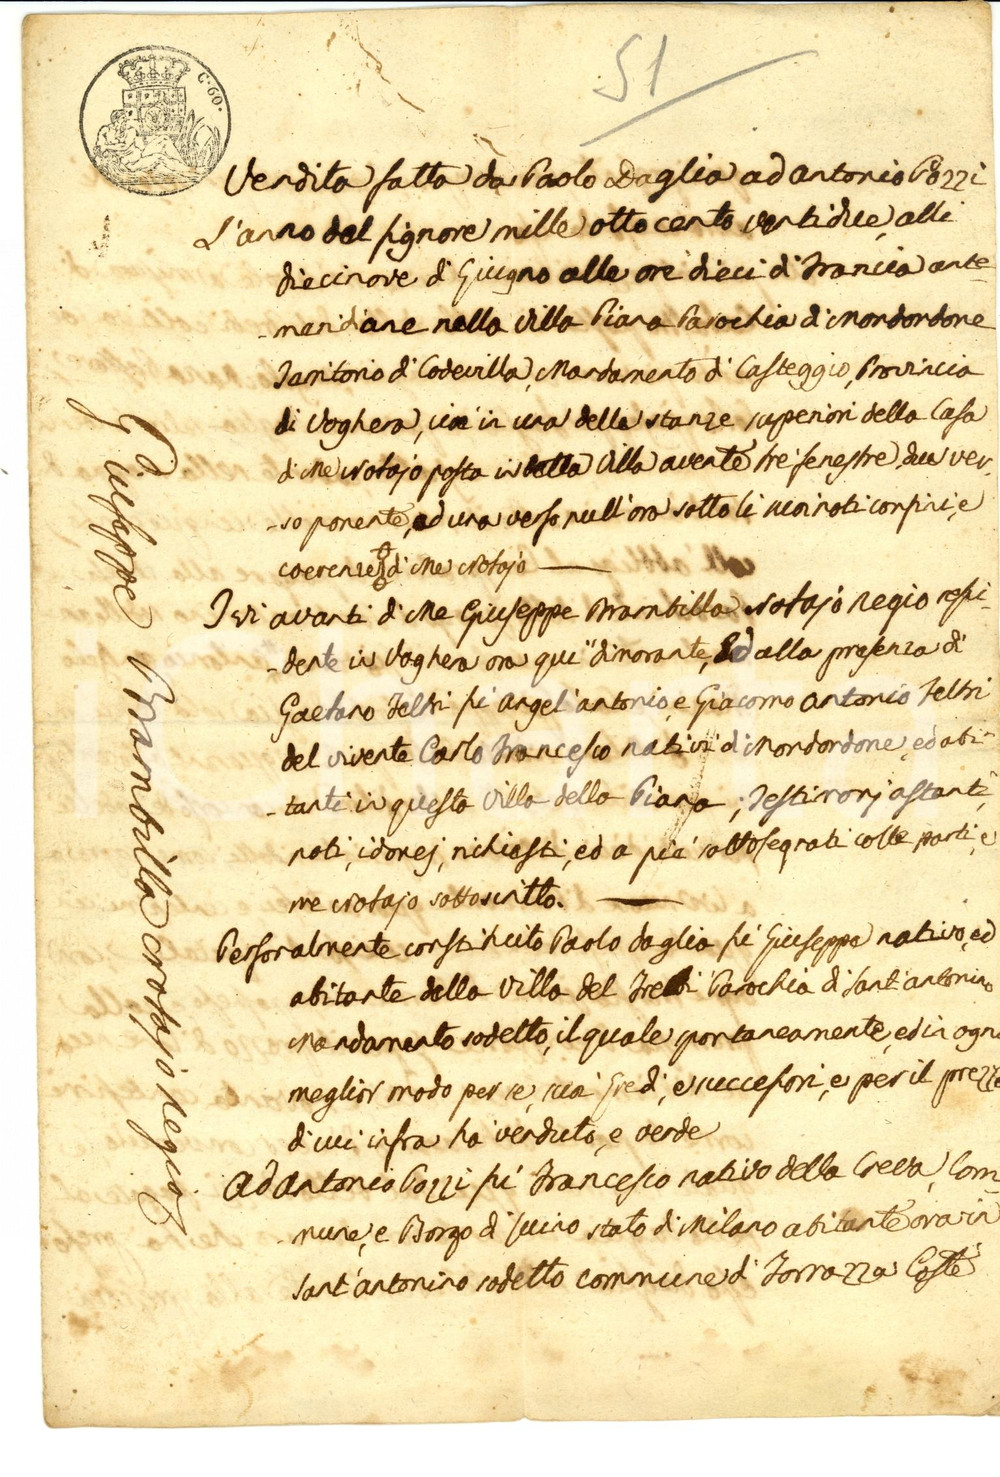 51
C. 60.
Vendita fatta da Paolo Daglia ad Antonio Pozzi
L'anno del signore mille otto cento venti due, alli
diecinove di Giugno alle ore dieci di Francia ante
-meridiane nella Villa Piana Parochia di Mondondone
Territorio di Codevilla, Mandamento di Casteggio, Provincia
di Voghera, cioè in una delle stanze superiori della Casa
di Me Notajo posta in detta Villa avente tre fenestre, due ver-
-so ponente, ed una verso null'ora sotto li suoi noti confini, e
coerenze di Me Notajo
Ivi avanti di Me Giuseppe Brambilla Notajo Regio resi-
-dente in Voghera ora qui dimorante, Ed alla presenza di
Gaetano Feltri fu Angel'antonio, e Giacomo Antonio Feltri
del vivente Carlo Francesco nativi di Mondondone, ed abi-
-tanti in questa Villa della Piana, Testimonj astanti,
noti, idonej, richiesti, ed a piè sottosegnati colle parti, e
me Notajo sottoscritto.
Personalmente constituito Paolo Daglia fu Giuseppe nativo, ed
abitante della Villa del Trebbi Parochia di Sant'antonino
Mandamento sodetto, il quale spontaneamente, ed in ogni
meglior modo per se, suoi Eredi, e successori, e per il prezzo
di cui infra ha venduto, e vende
Ad Antonio Pozzi fu Francesco nativo della Creva, Com-
-mune, e Borgo di Luino stato di Milano abitante ora in
Sant'antonino sodetto commune di Torrazza Coste
Giuseppe Brambilla Notajo Regio